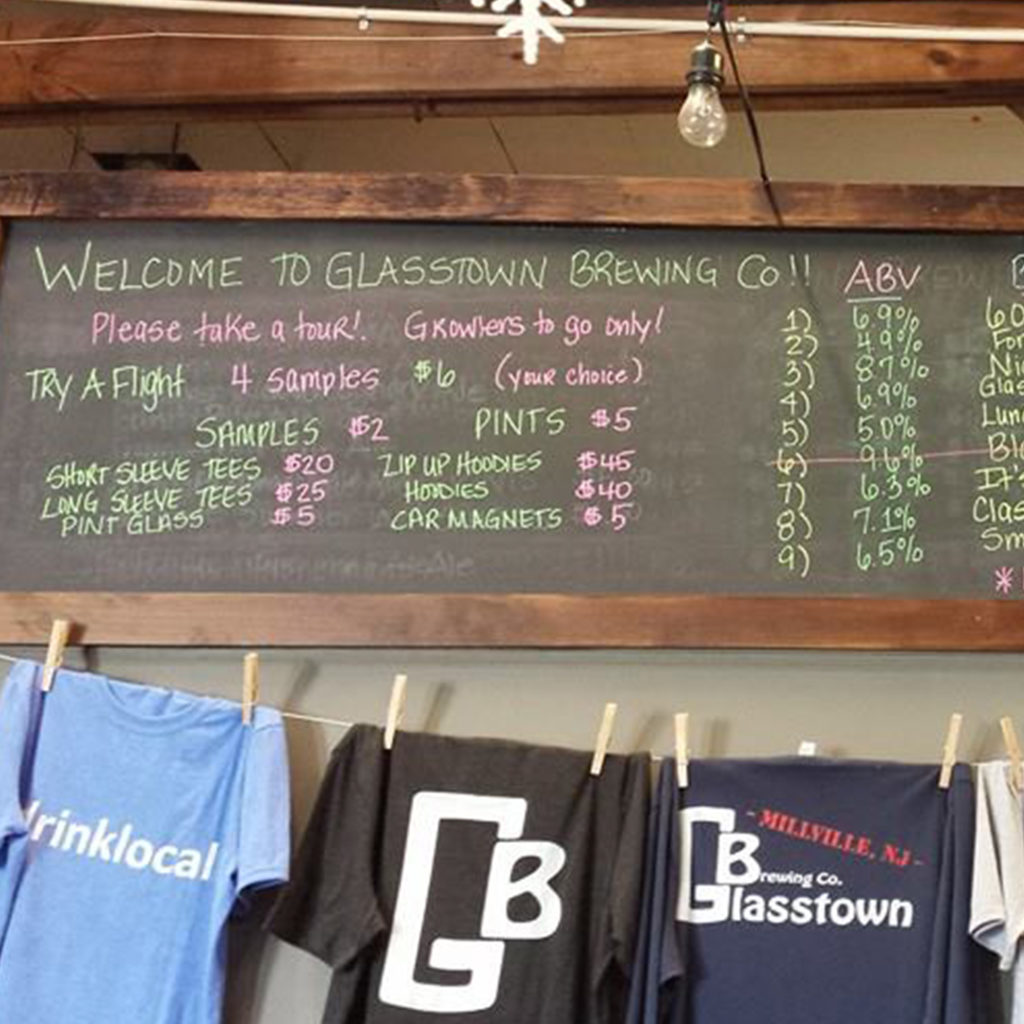 WELCOME TO GLASSTOWN BREWING Co!!
Please take a tour! Growlers to go only!
TRY A Flight 4 samples $6 (your choice)
SAMPLES $2 PINTS $5
SHORT SLEEVE TEES $20 ZIP UP HOODIES $45
LONG SLEEVE TEES $25 HOODIES $40
PINT GLASS $5 CAR MAGNETS $5
ABV
1) 6.9% 60
2) 4.9% For
3) 8.7% Nic
4) 6.9% Glas
5) 5.0% Lun
6) 9.6% Ble
7) 6.3% It's
8) 7.1% Clas
9) 6.5% Sm
*
drinklocal
GB
- MILLVILLE, NJ -
Brewing Co.
Glasstown